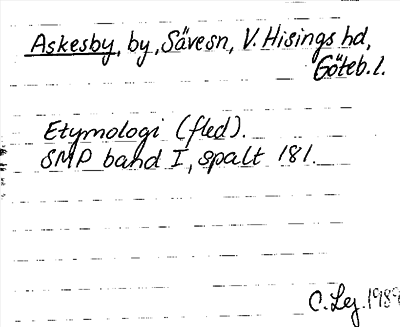 Askesby, by, Säve sn, V. Hisings hd,
Göteb. l.
Etymologi (fled).
SMP band I, spalt 181.
C. Lej. 1989